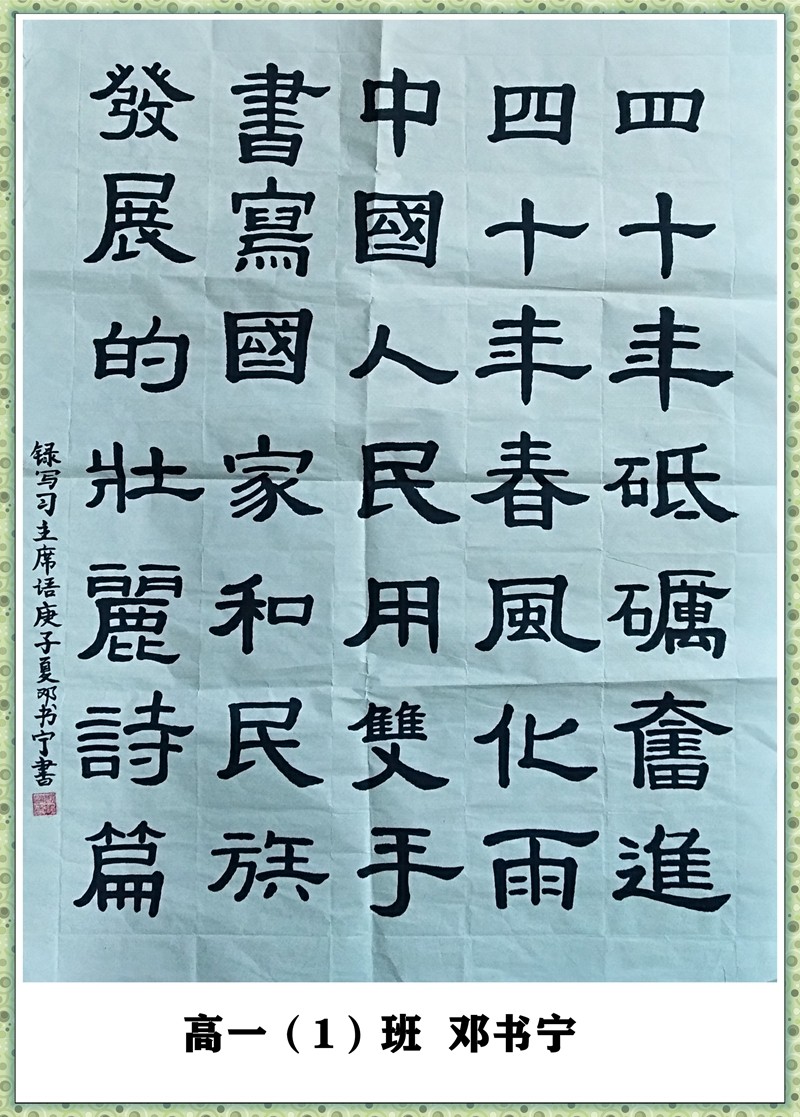 四十年砥礪奮進
四十年春風化雨
中國人民用雙手
書寫國家和民族
發展的壯麗詩篇
録写习主席语庚子夏邓书宁書
高一（1）班 邓书宁